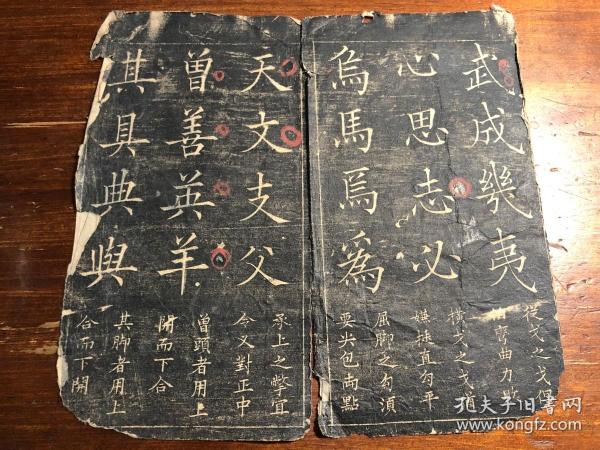 武成幾夷
之戈但
彎曲力敗
心思志必
橫戈之戈須
嫌挺直勾平
烏馬焉為
屈脚之勾須
要尖包兩點
天文支父
承上之撇宜
令乂對正中
曾善英羊
曾頭者用上
開而下合
其具典與
其脚者用上
合而下開
孔夫子旧书网
www.kongfz.com